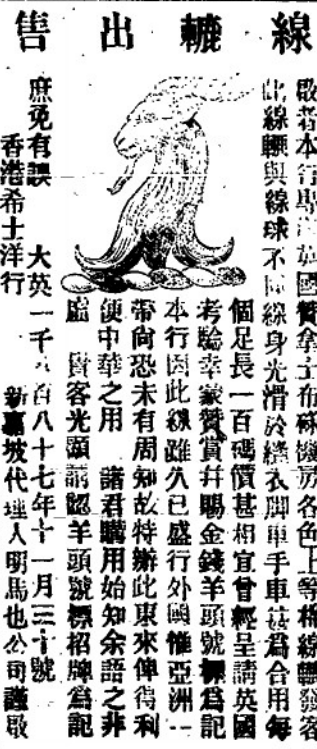 線轆出售
啟者本行專造英國
布碌機房各色上等棉線轆發客
此線轆與線球不同線身光滑於縫衣脚車手車甚爲合用每
個足長一百碼價甚相宜曾經呈請英國
考驗幸蒙贊賞并賜金錢羊頭號標爲記
本行因此線雖久已盛行外國惟亞洲一
帶尚恐未有周知故特辦此東來俾得利
便中華之用　諸君購用始知余語之非
虛　貴客光顧請認羊頭號標招牌爲記
庶免有誤　大英一千八百八十七年十一月三十號
香港希士洋行
新嘉坡代理人明馬也公司謹啟